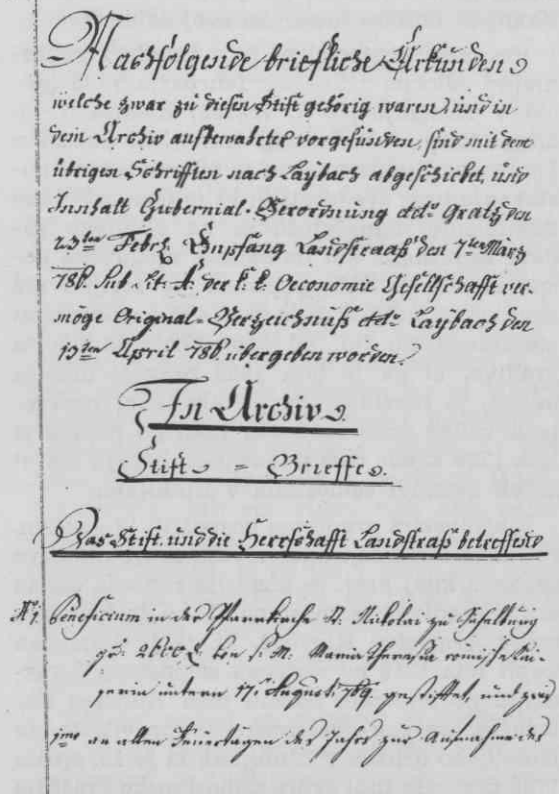 Nachfolgende briefliche Urkunden
welche zwar zu diesen Stift gehörig waren, und in
dem Archiv aufbewahrter vorgefunden, sind mit dem
übrigen Schrifften nach Laybach abgeschicket, und
Innhalt Gubernial-Verordnung ddto Gratz den
23ten Febr. Empfang Landstraaß den 7ten März
786. Sub Lit. A. der k. k. Oeconomie Gesellschafft ver-
möge Original-Verzeichnuß ddto Laybach den
13ten April 786. übergeben worden.
In Archiv.
Stift = Brieffe.
Das Stift und die Herrschafft Landstraß betreffend
No 1. Beneficium in der Pfarrkirche St. Nikolai zu
pr. 2000 f. von I. M. Maria Theresia römische Kai-
serin untern 17. August 769. gestifftet, und zwar
imo an allen Feuertägen des Jahrs zur Aufnahme des